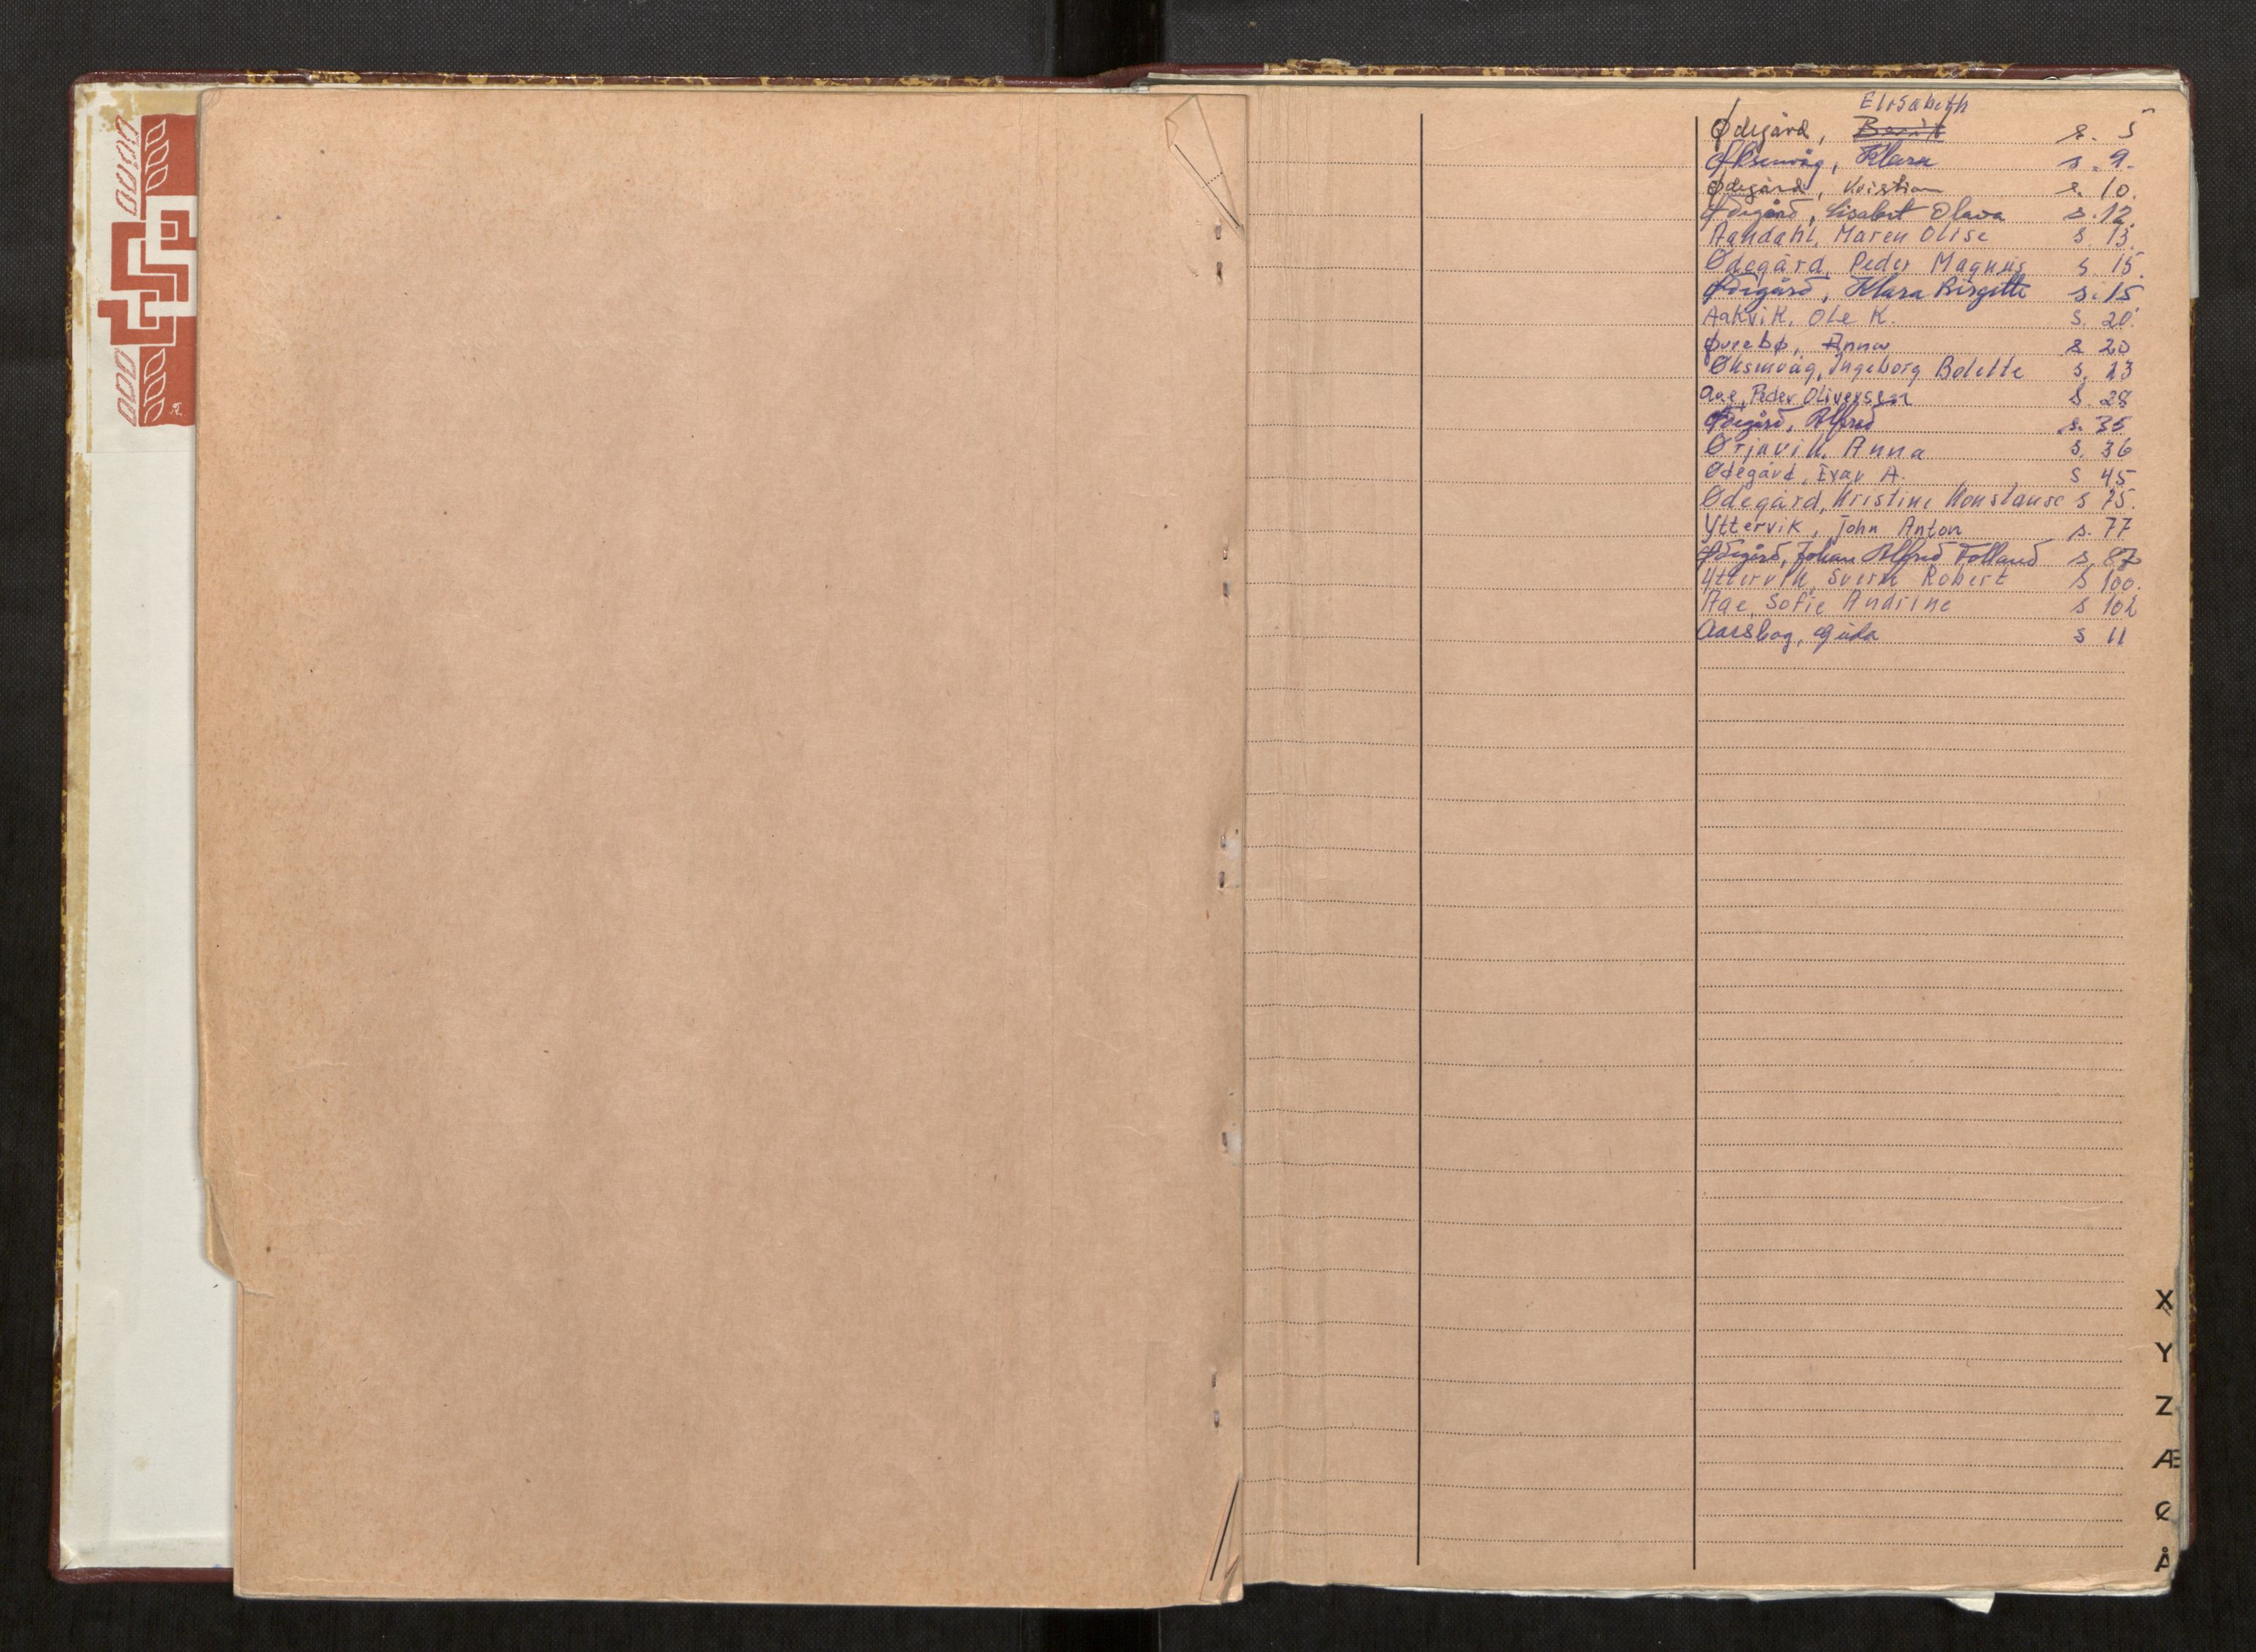 Elisabeth
Ødegård, Berit s. 5
Øksenvåg, Klara s. 9.
Ødegård, Kristian s. 10.
Ødegård, Lisabet Olava s. 12.
Aandahl, Maren Olise s. 13.
Ødegård, Peder Magnus s. 15.
Ødegård, Klara Birgitte s. 15
Aakvik, Ole K. s. 20.
Øverbø, Anna s 20
Øksenvåg, Ingeborg Bolette s. 23
Aae, Peder Oliversen s. 28
Ødegård, Alfred s. 35
Ørjavik, Anna s. 36
Ødegård, Ivar A. s 45
Ødegård, Kristine Konstanse s 75.
Yttervik, John Anton s. 77
Ødegård, Johan Alfred Folland s. 87
Yttervik, Sverre Robert s 100.
Aae, Sofie Andrine s 102
Aarskog, Gida s 11
X
Y
Z
Æ
Ø
Å